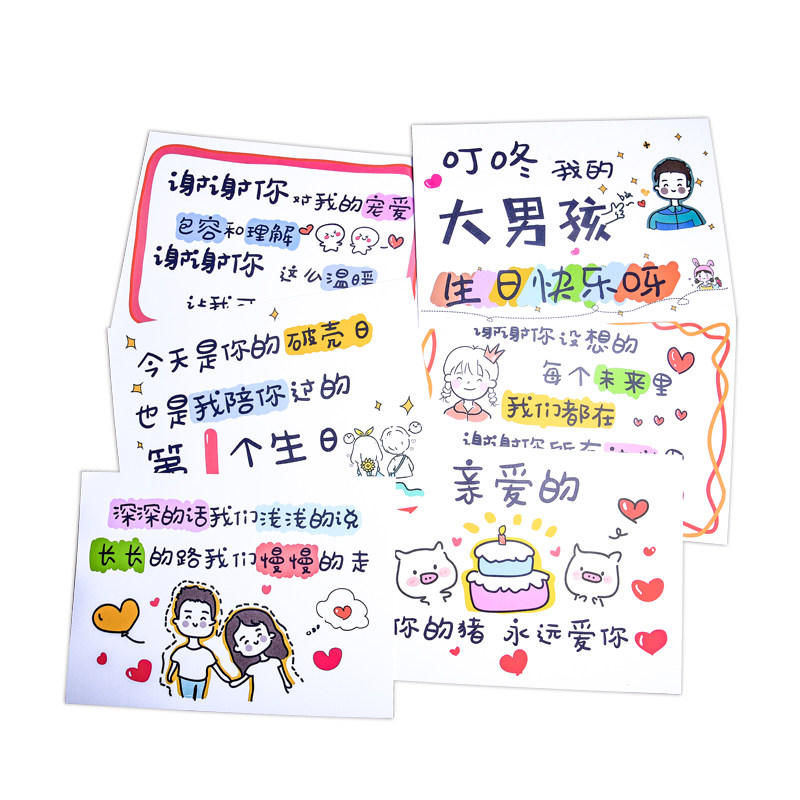 谢谢你 对我的宠爱
包容和理解
谢谢你 这么温暖
让我
叮咚 我的
biu
大男孩
生日快乐呀
今天是你的破壳日
也是我陪你过的
第1个生日
谢谢你设想的
每个未来里
我们都在
谢谢你所有
深深的话我们浅浅的说
长长的路我们慢慢的走
亲爱的
你的猪 永远爱你